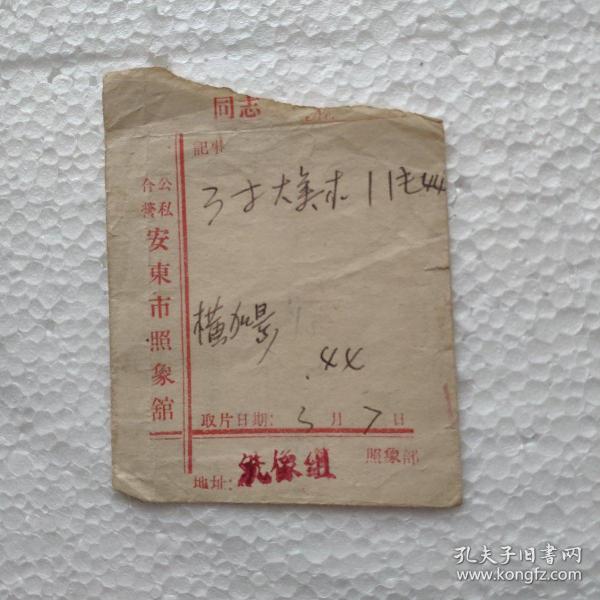 同志
記事
公私
合營
安東市照象舘
3寸大美术 11毛44
横加影
.44
取片日期: 3月7日
照象部
洗像组
地址:
孔夫子旧书网
www.kongfz.com